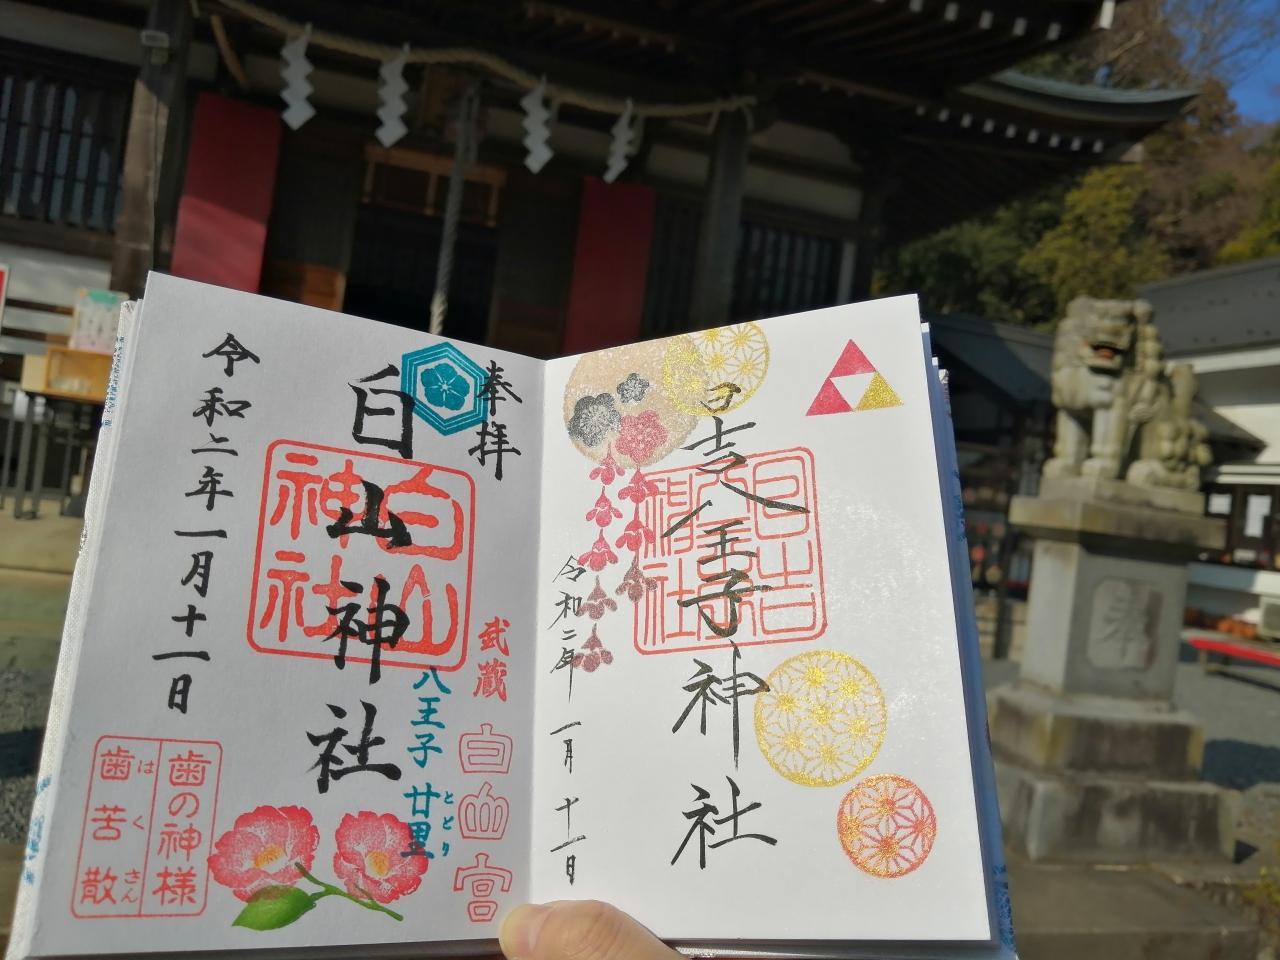 日吉八王子神社
日吉
八王子
神社
令和二年一月十一日
奉拝
白山神社
白山
神社
武蔵白山宮
八王子廿里
とどり
令和二年一月十一日
歯の神様
歯苦散
はくさん
奉